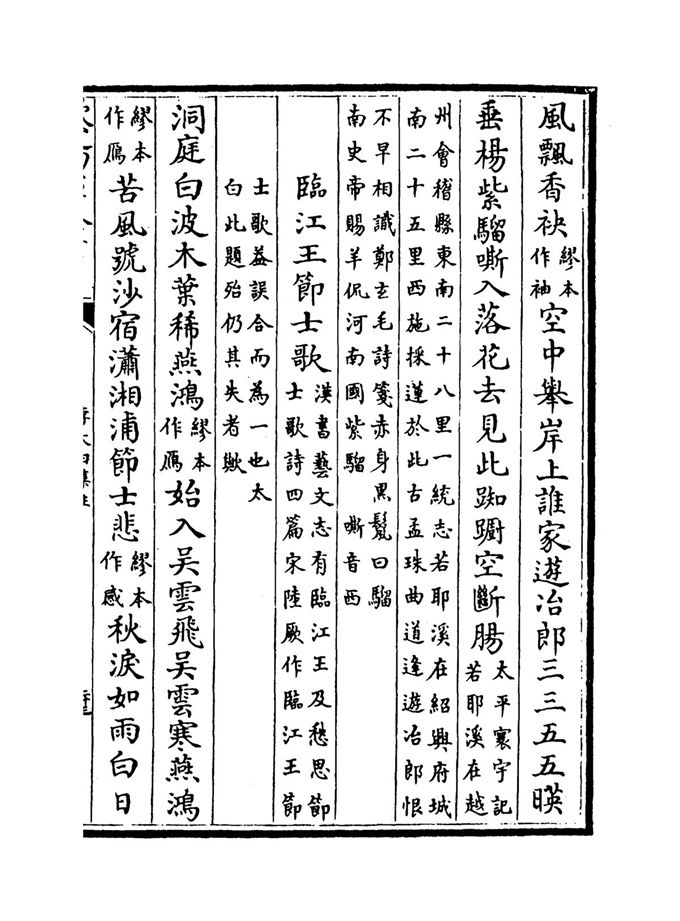 風飄香袂繆本作袖空中舉岸上誰家遊冶郎三三五五暎
垂楊紫騮嘶入落花去見此踟蹰空斷腸太平寰宇記
若耶溪在越
州會稽縣東南二十八里一統志若耶溪在紹興府城
南二十五里西施採蓮於此古孟珠曲道逢遊冶郎恨
不早相識鄭玄毛詩箋赤身黑鬛曰騮
南史帝賜羊侃河南國紫騮 嘶音西
臨江王節士歌漢書藝文志有臨江王及愁思節
士歌詩四篇宋陸厥作臨江王節
士歌葢誤合而為一也太
白此題殆仍其失者歟
洞庭白波木葉稀燕鴻繆本作雁始入吳雲飛吳雲寒燕鴻
繆本作雁苦風號沙宿瀟湘浦節士悲繆本作感秋淚如雨白日